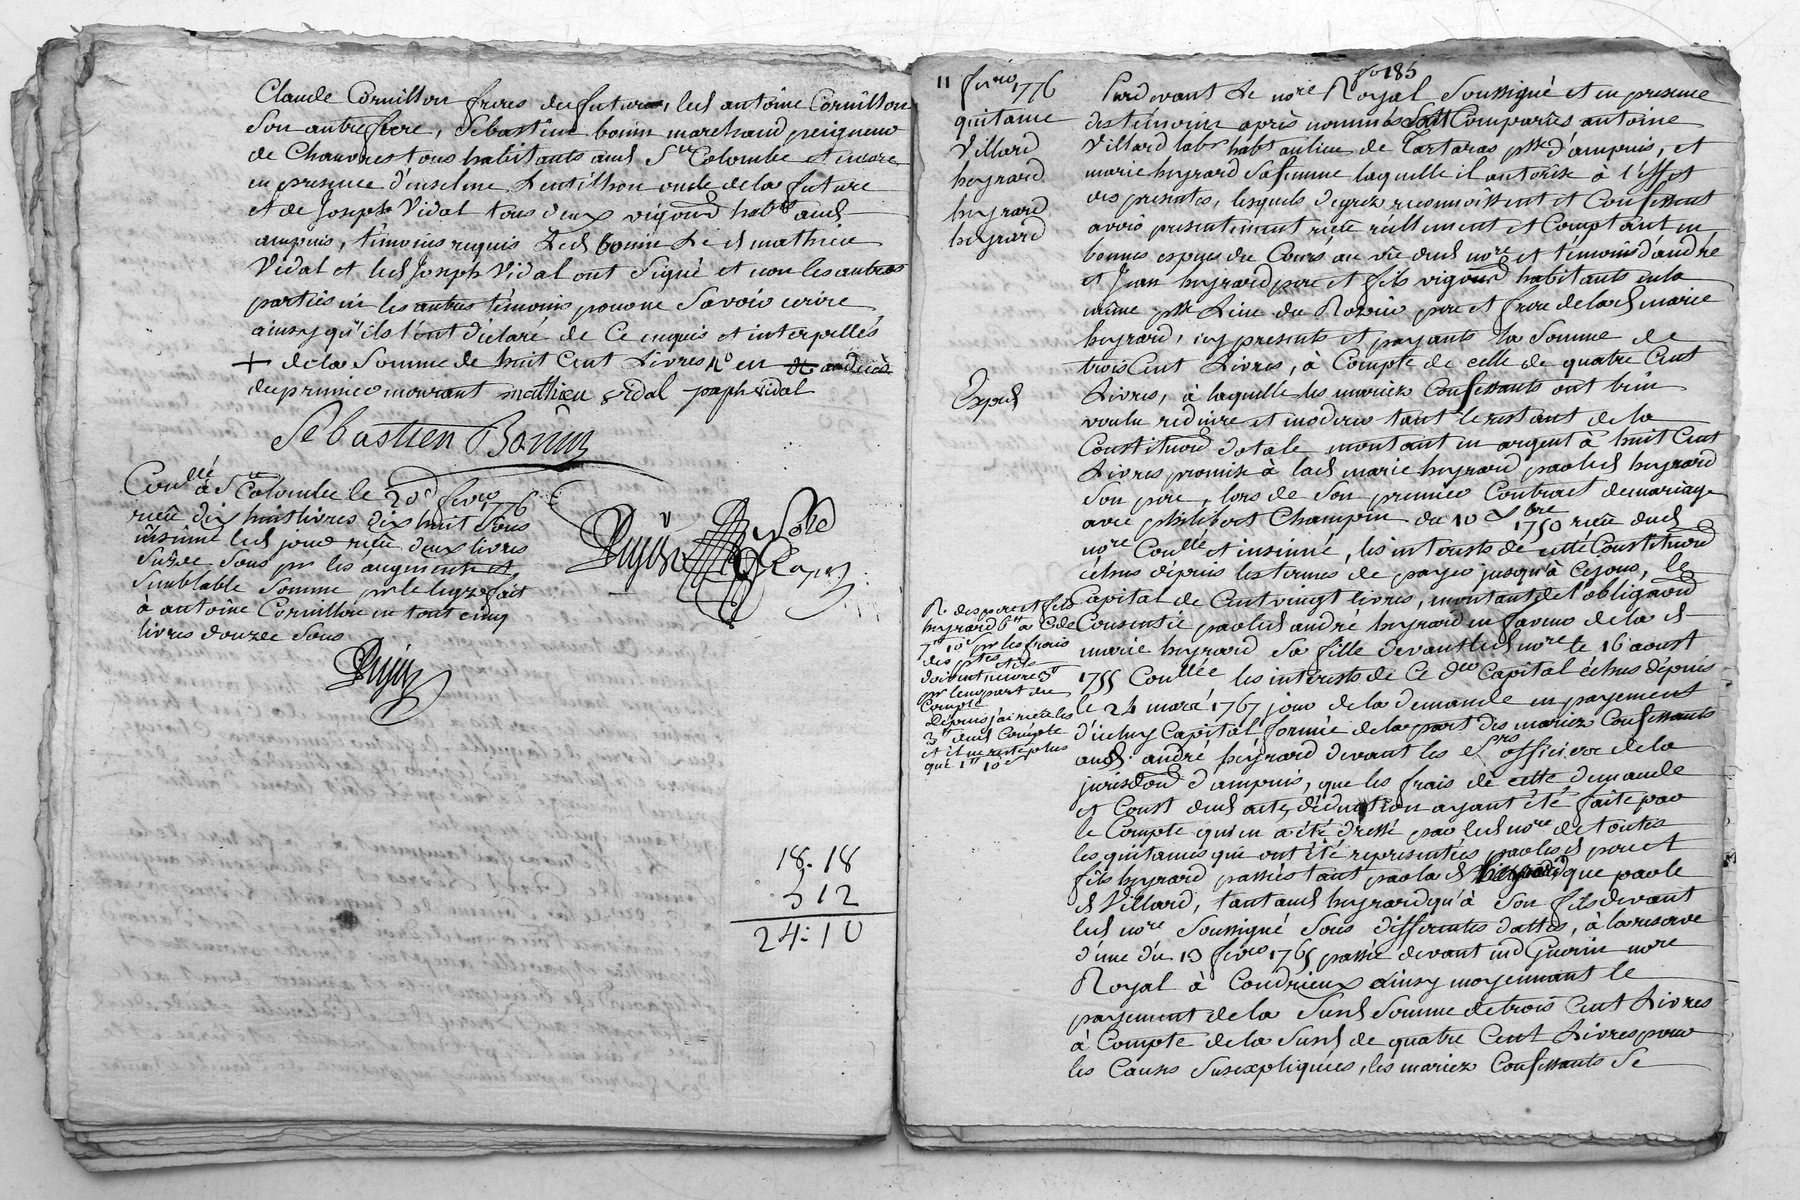 Claude Cornillon freres du futur, led antoine Cornillon
Son autre frere, Sebastien bonin marchand peigneur
de Chanvres tous habitants aud Ste Colombe et encore
en presence d'enselme Lentillon oncle de la future
et de Joseph Vidal tous deux vigrons habts aud
ampuis, témoins requis Led bonin Le d mathieu
Vidal et led Joseph Vidal ont Signé et non les autres
parties ni les autres témoins pour ne Savoir ecrire
ainsy qu'ils l'ont déclaré de Ce enquis et interpellés
+ de la Somme de huit Cent Livres
du premier mourant mathieu vidal joseph vidal
Sebastien Bonin
Conllé à Ste Colombe le 20e fevro 1776
recu dix huit livres dix huit Sous
insinué led jour recu deux livres
Seize Sous pr les augments et
Semblable Somme pr le legs fait
à antoine Cornillon en tout cinq
livres douze Sous
Dujin
18. 18
5 12
24: 10
fo 185
11 fevro 1776
quitance
Villard
heyrard
heyrard
heyrard
Expd
Pardevant Le nore Royal Soussigné et en presence
des témoins après nommés Sont Comparus antoine
Villard labr habt au lieu de Tartaras psse d'ampuis, et
marie heyrard Sa femme laquelle il autorise à l'effet
des presentes, lesquels de gré reconnoissent et Confessent
avoir presentement recu réellement et Comptant en
bonnes especes du Cours au vû dud nore et témoins d'andré
et Jean heyrard pere et fils vigrons habitants en la
même psse Lieu du Rozier pere et frere de lad marie
heyrard, icy presents et payants la Somme de
trois Cent Livres, à Compte de celle de quatre Cent
Livres, à laquelle les mariez Confessants ont bien
voulu reduire et moderer tant le restant de la
Constituon dotale montant en argent à huit Cent
Livres promise à lad marie heyrard par led heyrard
Son pere, lors de Son premier Contract de mariage
avec philibert Champin du 10 xbre 1750 recu dud
nore Conllé et insinué, les interets de cette Constituon
échus dépuis les termes de payer jusqu'à ce jour, le
Capital de Cent vingt livres, montant de l'obligaon
Consentie par led andré heyrard en faveur de la d
marie heyrard Sa fille devant led nore le 16 aoust
1755 Conllée les interets de Ce der Capital échus dépuis
le 24 mars 1767 jour de la demande en payement
d'iceluy Capital formée de la part des mariez Confessants
aud andré heyrard devant les Srs officiers de la
jurisdon d'ampuis, que les frais de cette demande
et Coust dud acte, déduction ayant été faite par
le Compte qui en a été dressé par led nore de toutes
les quitances qui ont été representées par les d pere et
fils heyrard passées tant par la d heyrard que par le
d Villard, tant aud heyrard qu'à Son fils devant
led nore Soussigné Sous differentes dattes, à la reserve
d'une du 13 fevro 1765 passée devant Guerin nore
Royal à Condrieux ainsy moyennant le
payement de la Susd Somme de trois Cent Livres
à Compte de la Susd de quatre Cent Livres pour
les Causes Susexpliquées, les mariez Confessants Se
R. des pere et fils
heyrard
pr les frais
des ptes et ils
doivent encore 3tt
pr leur part du
Compte
dépuis j'ai recu les
3tt dud Compte
et il ne reste plus
que 1tt 10s